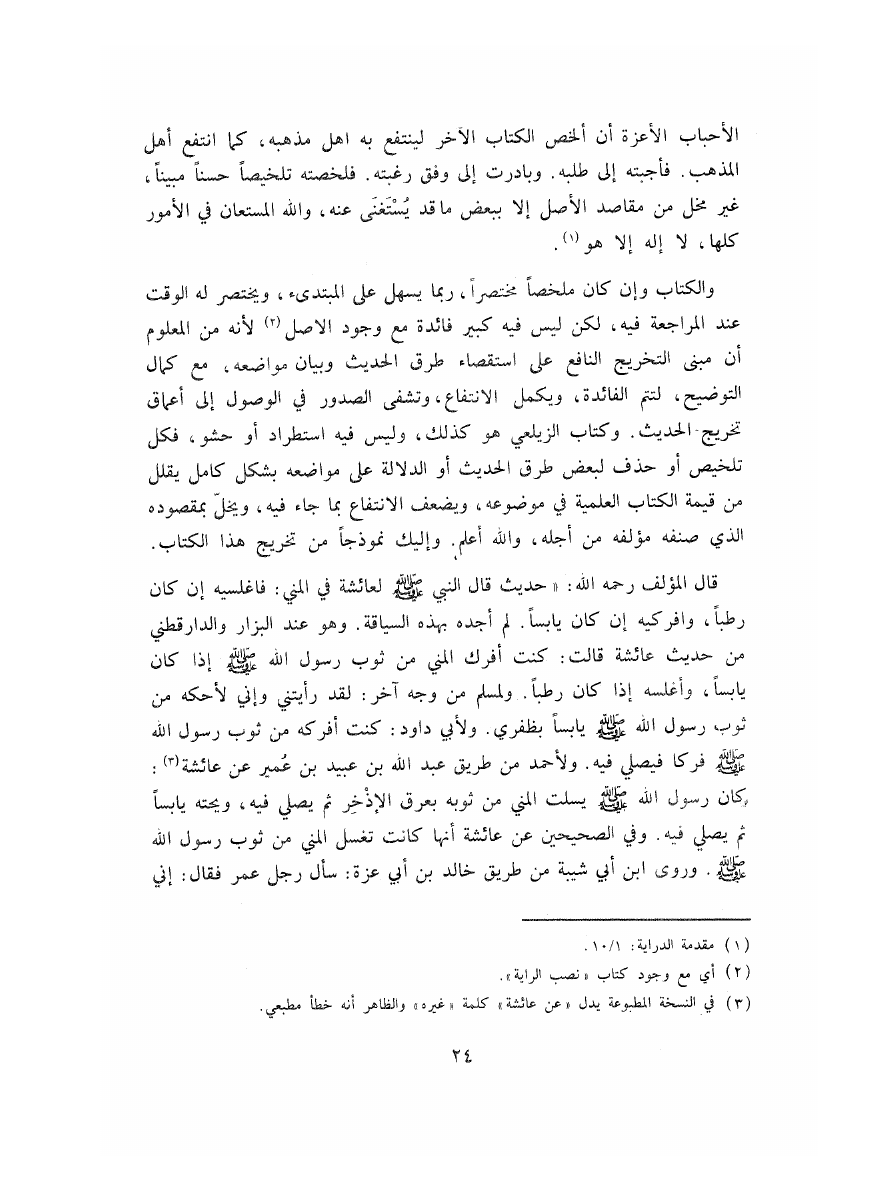 الأحباب الأعزة أن ألخص الكتاب الآخر لينتفع به اهل مذهبه، كما انتفع أهل
المذهب. فأجبته إلى طلبه. وبادرت إلى وفق رغبته. فلخصته تلخيصاً حسناً مبيناً،
غير مخل من مقاصد الأصل إلا ببعض ما قد يُسْتَغنَى عنه، والله المستعان في الأمور
كلها، لا إله إلا هو (١).
والكتاب وإن كان ملخصاً مختصراً، ربما يسهل على المبتدىء، ويختصر له الوقت
عند المراجعة فيه، لكن ليس فيه كبير فائدة مع وجود الاصل (٢) لأنه من المعلوم
أن مبنى التخريج النافع على استقصاء طرق الحديث وبيان مواضعه، مع كمال
التوضيح، لتتم الفائدة، ويكمل الانتفاع، وتشفى الصدور في الوصول إلى أعماق
تخريج الحديث. وكتاب الزيلعي هو كذلك، وليس فيه استطراد أو حشو، فكل
تلخيص أو حذف لبعض طرق الحديث أو الدلالة على مواضعه بشكل كامل يقلل
من قيمة الكتاب العلمية في موضوعه، ويضعف الانتفاع بما جاء فيه، ويخلّ بمقصوده
الذي صنفه مؤلفه من أجله، والله أعلم. وإليك نموذجاً من تخريج هذا الكتاب.
قال المؤلف رحمه الله: « حديث قال النبي ﷺ لعائشة في المني: فاغلسيه إن كان
رطباً، وافركيه إن كان يابساً. لم أجده بهذه السياقة. وهو عند البزار والدارقطني
من حديث عائشة قالت: كنت أفرك المني من ثوب رسول الله ﷺ إذا كان
يابساً، وأغلسه إذا كان رطباً. ولمسلم من وجه آخر: لقد رأيتني وإني لأحكه من
ثوب رسول الله ﷺ يابساً بظفري. ولأبي داود: كنت أفركه من ثوب رسول الله
ﷺ فركا فيصلي فيه. ولأحمد من طريق عبد الله بن عبيد بن عُمير عن عائشة (٣):
كان رسول الله ﷺ يسلت المني من ثوبه بعرق الإذْخِر ثم يصلي فيه، ويحته يابساً
ثم يصلي فيه. وفي الصحيحين عن عائشة أنها كانت تغسل المني من ثوب رسول الله
ﷺ. وروى ابن أبي شيبة من طريق خالد بن أبي عزة: سأل رجل عمر فقال: إني
(١) مقدمة الدراية: ١٠/١.
(٢) أي مع وجود كتاب «نصب الراية».
(٣) في النسخة المطبوعة يدل «عن عائشة» كلمة «غيره» والظاهر أنه خطأ مطبعي.
٢٤